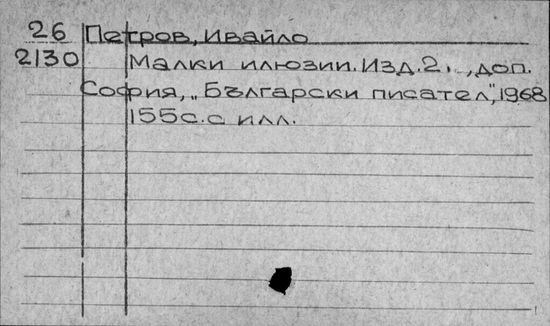 26 Петров, Ивайло
2130 Малки илюзии. Изд. 2. , доп.
София, „Български писател", 1968
155с. с илл.